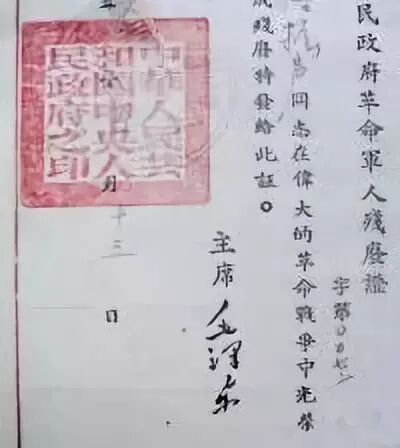 民政府革命軍人殘廢證
字第
同志在偉大的革命戰爭中光榮
成殘廢特發給此証。
主席 毛泽东
年 月十三日
中華人民共
和國中央人
民政府之印